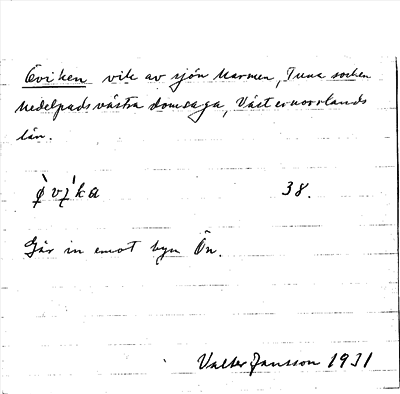 Öviken vik av sjön Marmen, Tuna socken
Medelpads västra domsaga, Västernorrlands
län.
ø̀vi̗ka 38.
Går in emot byn Ön.
Valter Jansson 1931